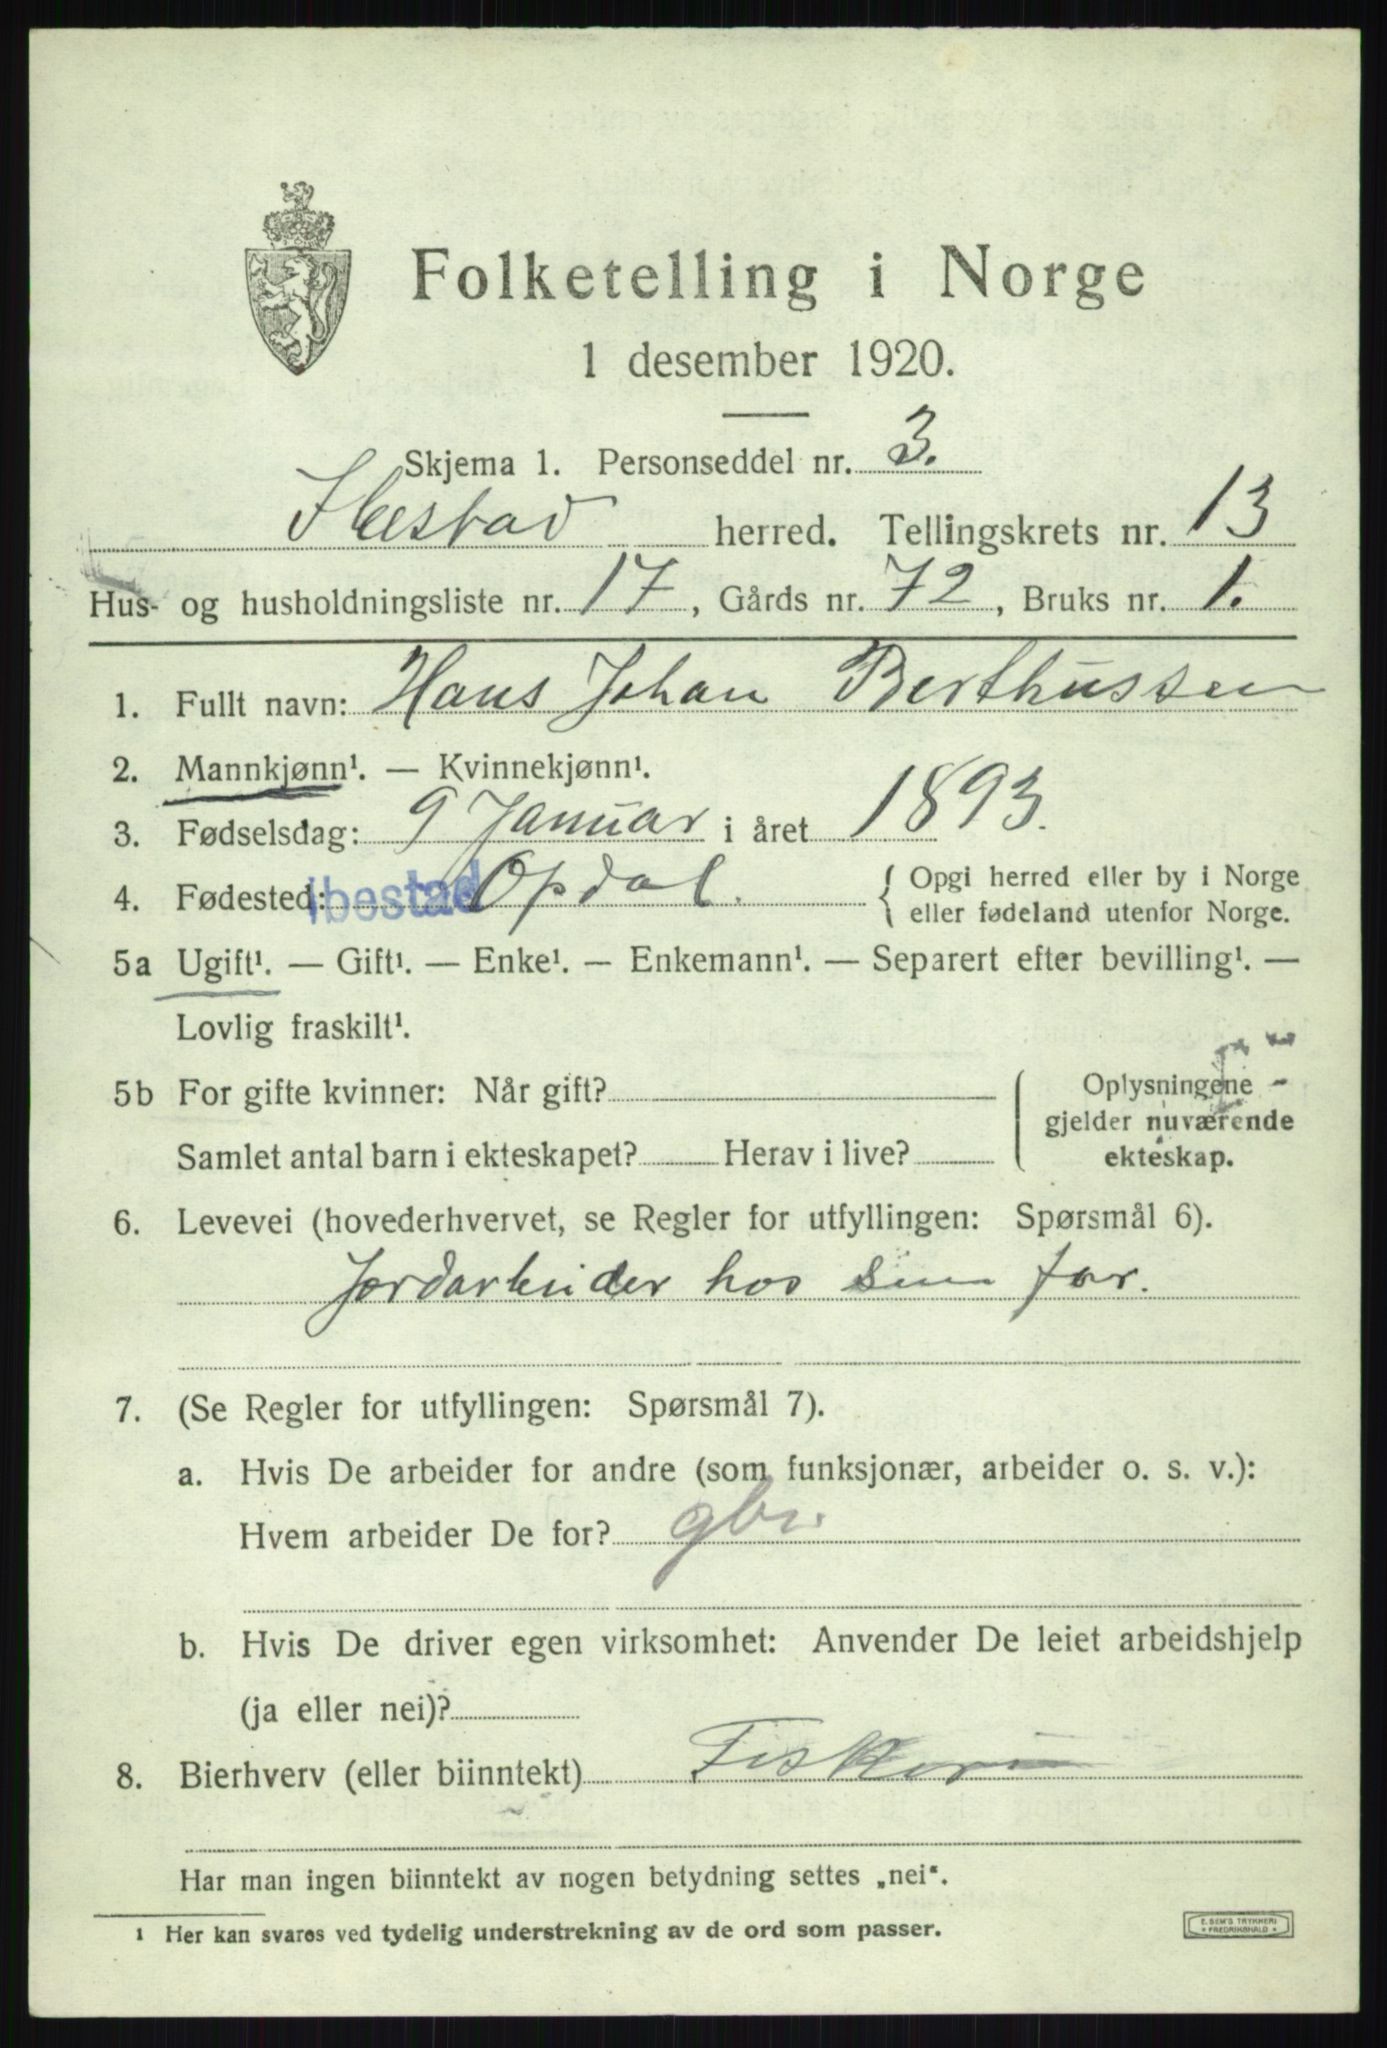 Folketelling i Norge
1 desember 1920.
Skjema 1. Personseddel nr. 3.
Ibestad herred. Tellingskrets nr. 13
Hus- og husholdningsliste nr. 17, Gårds nr. 72, Bruks nr. 1.
1. Fullt navn: Hans Johan Berthussen
2. Mannkjønn¹. — Kvinnekjønn¹.
3. Fødselsdag: 9 Januar i året 1893.
4. Fødested: Ibestad Opdal. { Opgi herred eller by i Norge
eller fødeland utenfor Norge.
5a Ugift¹. — Gift¹. — Enke¹. — Enkemann¹. — Separert efter bevilling¹. —
Lovlig fraskilt¹.
5b For gifte kvinner: Når gift? Oplysningene
gjelder nuværende
Samlet antal barn i ekteskapet? Herav i live? ekteskap.
6. Levevei (hovederhvervet, se Regler for utfyllingen: Spørsmål 6).
Jordarbeider hos sin far.
7. (Se Regler for utfyllingen: Spørsmål 7).
a. Hvis De arbeider for andre (som funksjonær, arbeider o. s. v.):
Hvem arbeider De for? gbr.
b. Hvis De driver egen virksomhet: Anvender De leiet arbeidshjelp
(ja eller nei)?
8. Bierhverv (eller biinntekt) Fiskeri
Har man ingen biinntekt av nogen betydning settes „nei“.
¹ Her kan svares ved tydelig understrekning av de ord som passer.
E. SEM'S TRYKKERI
* FREDRIKSHALD *